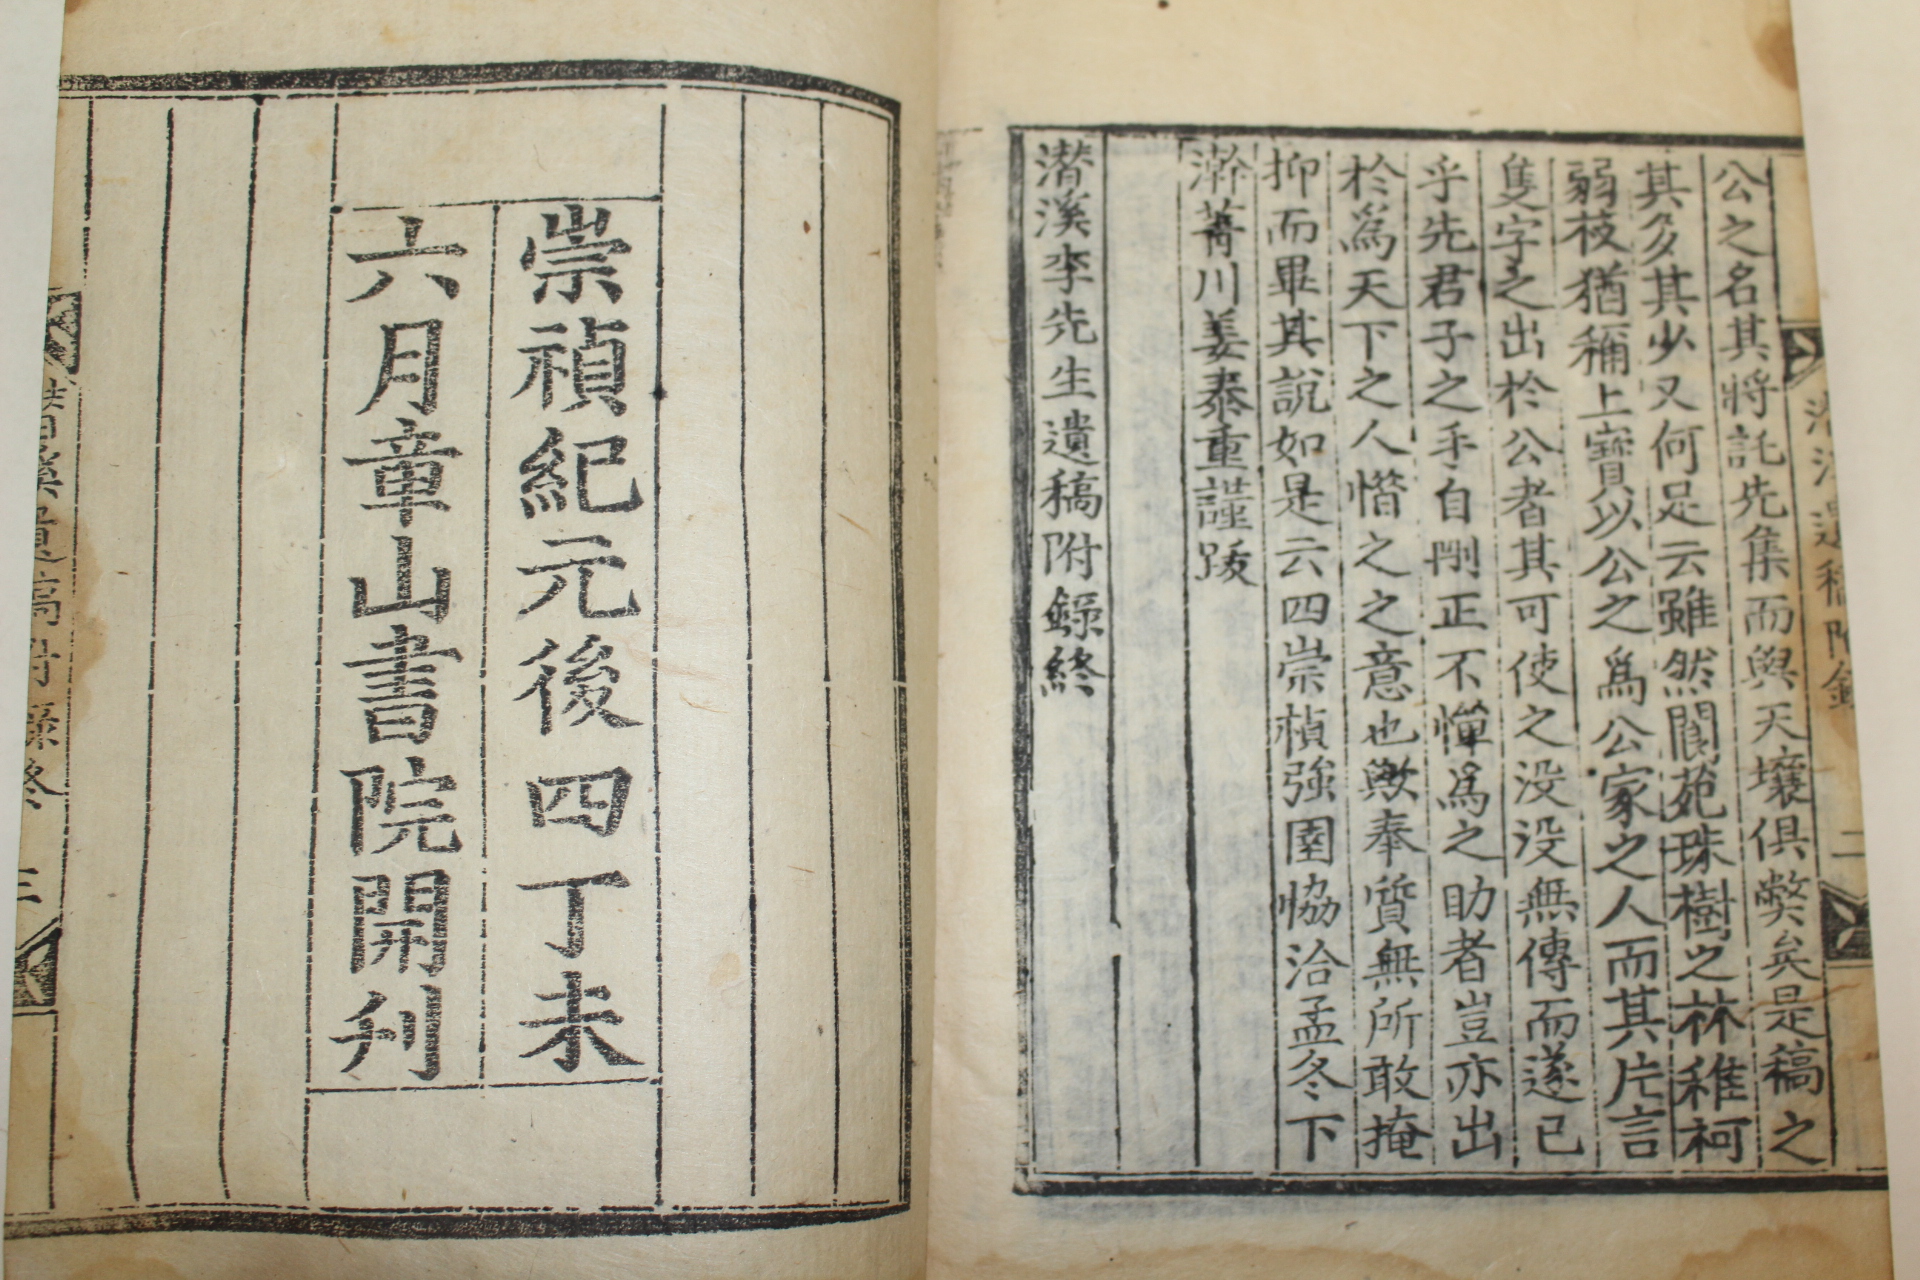 公之名其將託先集而與天壤俱弊矣是稿之
其多其少又何足云雖然閬苑珠樹之林稚柯
弱枝猶稱上寶以公之爲公家之人而其片言
隻字之出於公者其可使之没没無傳而遂已
乎先君子之手自刪正不憚爲之助者豈亦出
於爲天下之人惜之之意也歟奉質無所敢掩
抑而畢其說如是云四崇楨強圉恊洽孟冬下
澣菁川姜泰重謹跋
潜溪李先生遺稿附錄終
崇禎紀元後四丁未
六月章山書院開刋
潜溪遺稿附錄終 三